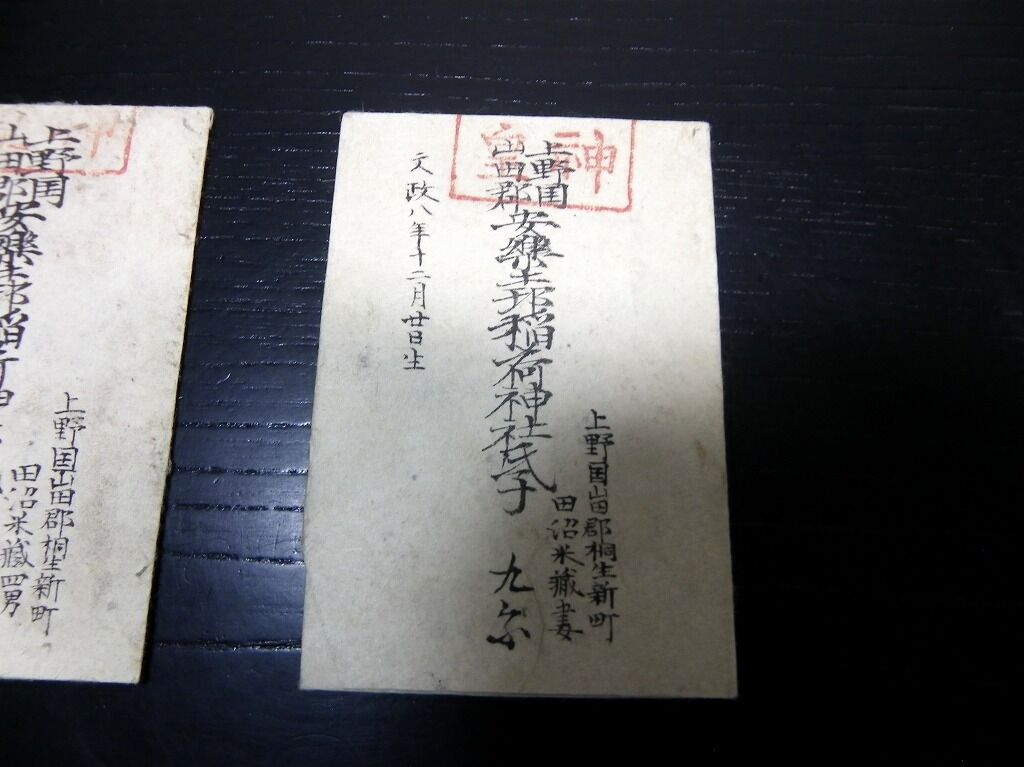 上野国山田郡桐生新町
田沼米藏妻
上野国
山田郡安樂土邨稲荷神社氏子
文政八年十二月廿日生
神
上野国山田郡桐生新町
田沼米藏四男
上野国
山田郡安樂土邨稲荷神